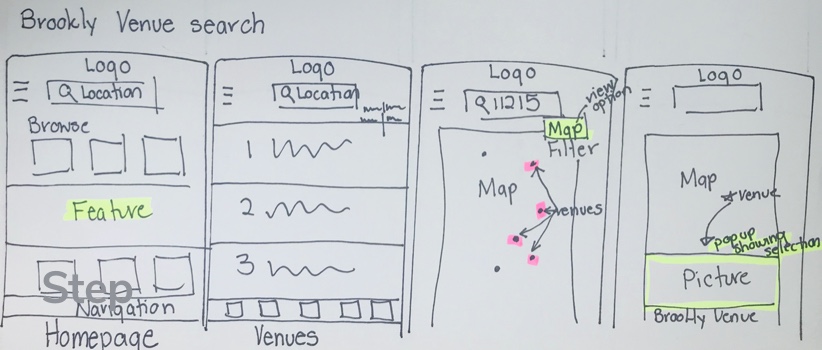 Brookly Venue search
Logo
Q Location
Browse
Feature
Step
Navigation
Homepage
Logo
Q Location
1
2
3
Venues
Logo
Q 11215
view option
Map
Filter
Map
venues
Logo
Map
venue
popup
showing
selection
Picture
Brookly Venue